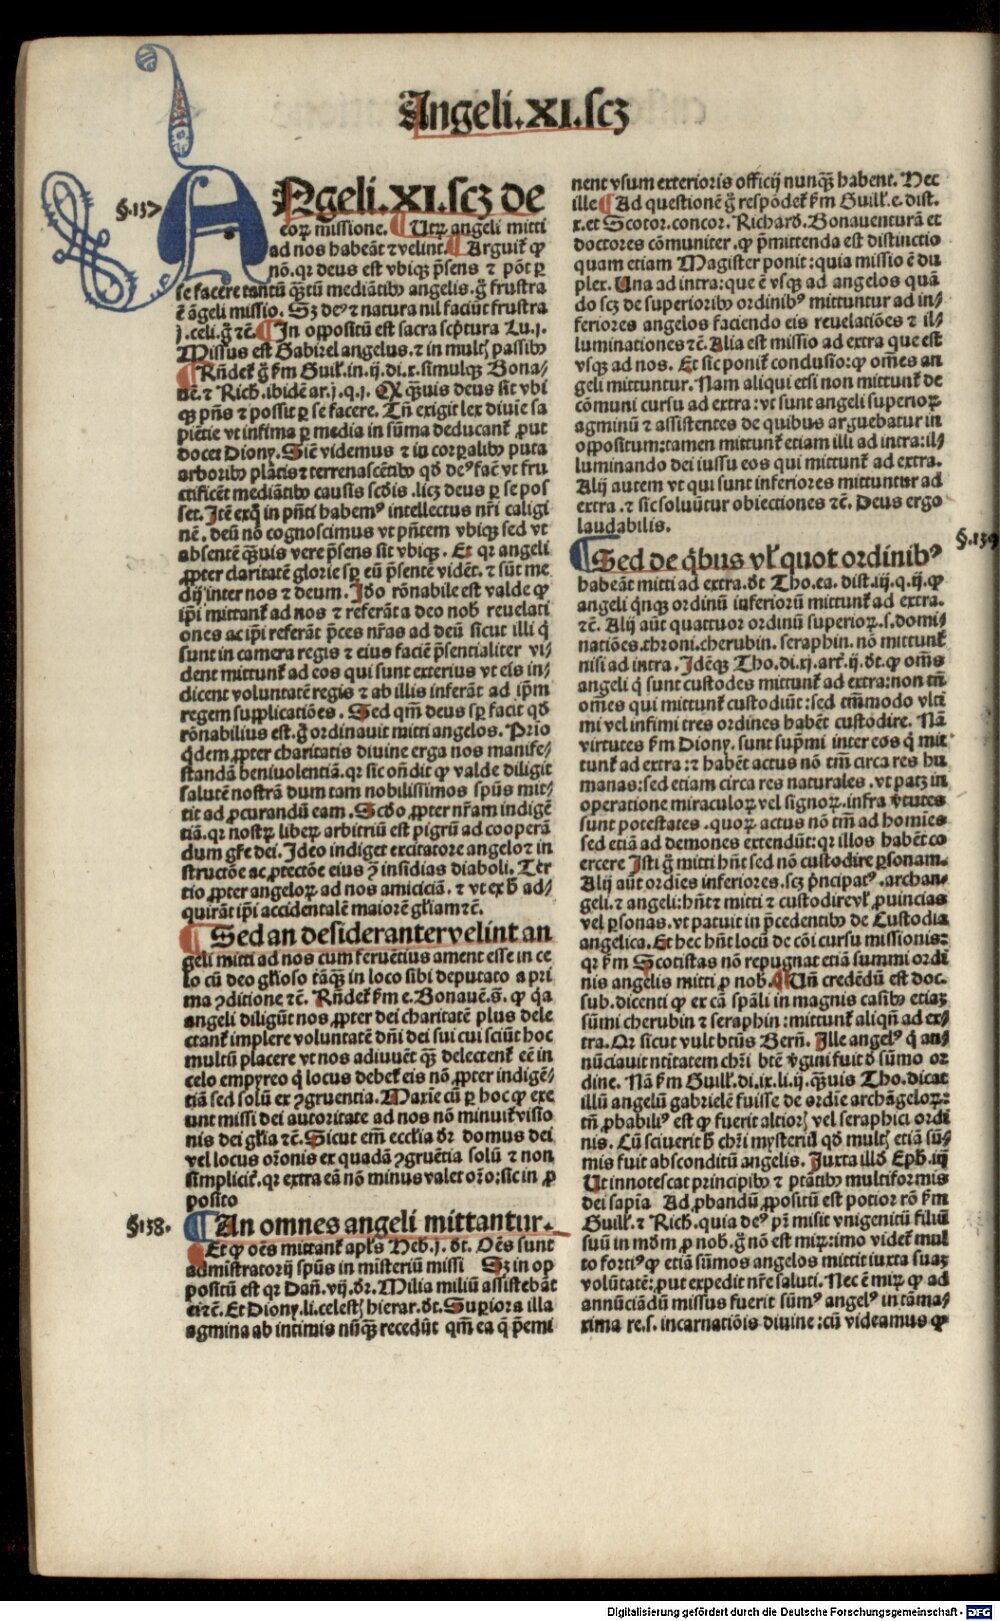 Angeli.XI.scꝫ
§.137
ANgeli.XI.scꝫ de
eoꝝ missione. ¶ Utꝝ angeli mitti
ad nos habeãt ⁊ velint. ¶ Arguit̃ ꝙ
nõ. qꝛ deus est vbiqꝫ p̃sens ⁊ põt ꝑ
se facere tantũ q̃ꝫtũ mediãtibꝰ angelis. g̃ frustra
ẽ ãgeli missio. Sꝫ deꝰ ⁊ natura nil faciũt frustra
j.celi. g̃ ⁊c̃. ¶ In oppositũ est sacra scp̃tura Lu.j.
Missus est Gabriel angelus. ⁊ in mult̃ passibꝰ
¶ Rñdet̃ g̃ ẜm Guil̃.in.ij.di.x.simulqꝫ Bona-
vẽ. ⁊ Rich. ibidẽ ar.j.q.j. Q̃ q̃ꝫuis deus sit vbi
qꝫ pñs ⁊ possit ꝑ se facere. Tñ exigit lex diuĩe sa
piẽtie vt infima ꝑ media in sũma deducant̃ ꝓut
docet Diony. Sic̃ videmus ⁊ in corꝑalibꝰ puta
arboribꝰ plãtis ⁊ terrenascẽtibꝰ qđ deꝰ fac̃ vt fru
ctificẽt mediãtibꝰ causis scđis .licꝫ deus ꝑ se pos
set. Itẽ ex q̃ in pñti habemꝰ intellectus nr̃i caligi
nẽ. deũ nõ cognoscimus vt pñtem vbiqꝫ sed vt
absentẽ q̃ꝫuis vere p̃sens sit vbiqꝫ. Et qꝛ angeli
ꝓpter claritatẽ glorie sꝑ eũ p̃sentẽ vidẽt. ⁊ sũt me
dij inter nos ⁊ deum. Ido rõnabile est valde ꝙ
ip̃i mittant̃ ad nos ⁊ referãt a deo nob̃ reuelati
ones ac ip̃i referãt p̃ces nr̃as ad deũ sicut illi q̃
sunt in camera regis ⁊ eius faciẽ p̃sentialiter vi-
dent mittunt̃ ad eos qui sunt exterius vt eis in-
dicent voluntatẽ regis ⁊ ab illis inferãt ad ip̃m
regem supplicatiões. Sed qm̃ deus sꝑ facit qđ
rõnabilius est. g̃ ordinauit mitti angelos. Prio
q̃dem ꝓpter charitatis diuine erga nos manife-
standã beniuolentiã. qꝛ sic oñdit ꝙ valde diligit
salutẽ nostrã dum tam nobilissimos spũs mit-
tit ad ꝓcurandũ eam. Scđo ꝓpter nr̃am indigẽ
tiã. qꝛ nostꝝ libeꝝ arbitriũ est pigrũ ad cooperã
dum gr̃e dei. Ideo indiget excitatore angelo ⁊ in
structõe ac ꝓtectõe eius ꝯ̃ insidias diaboli. Ter
tio ꝓpter angeloꝝ ad nos amiciciã. ⁊ vt ex h̃ ad-
quirãt ip̃i accidentalẽ maiorẽ gl̃iam ⁊c̃.
¶ Sed an desideranter velint an
geli mitti ad nos cum feruẽtius ament esse in ce
lo cũ deo gl̃ioso tãqꝫ in loco sibi deputato a pri
ma ꝯditione ⁊c̃. Rñdet̃ ẜm e. Bonauẽ. s̃. ꝙ q̃a
angeli diligũt nos ꝓpter dei charitatẽ plus dele
ctant̃ implere voluntatẽ dñi dei sui cui sciũt hoc
multũ placere vt nos adiuuẽt q̃ꝫ delectent̃ eẽ in
celo empyreo q̃ locus debet̃ eis nõ ꝓpter indigẽ-
tiã sed solũ ex ꝯgruentia. Maxie cũ ꝑ hoc ꝙ exe
unt missi dei autoritate ad nos nõ minuit̃ visio
nis dei gl̃ia ⁊c̃. Sicut em̃ eccl̃ia dr̃ domus dei
vel locus or̃onis ex quadã ꝯgruẽtia solũ ⁊ non
simplicit̃. qꝛ extra eã nõ minus valet or̃o: sic in ꝓ
posito
§138.
¶ An omnes angeli mittantur.
¶ Et ꝙ oẽs mittant̃ apl̃s Heb.j. dt. Oẽs sunt
admĩstratorij spũs in misteriũ missi Sꝫ in op
positũ est qꝛ Dañ.vij.dr̃. Milia miliũ assistebãt
ei ⁊c̃. Et Diony.li.celest̃ hierar.dt. Supiora illa
agmina ab intimis nũq̃ꝫ recedũt qm̃ ea q̃ p̃emi
nent vsum exterioris officij nunq̃ꝫ habent. Nec
ille ¶ Ad questionẽ g̃ respõdet̃ ẜm Guil̃.e.dist.
x. et Scotor.concor. Richard. Bonauenturã et
doctores cõmuniter. ꝙ p̃mittenda est distinctio
quam etiam Magister ponit: quia missio ẽ du
plex. Una ad intra: que ẽ vsqꝫ ad angelos quã
do scꝫ de superioribꝰ ordinibꝰ mittuntur ad in-
feriores angelos faciendo eis reuelatiões ⁊ il-
luminationes ⁊c̃. Alia est missio ad extra que est
vsqꝫ ad nos. Et sic ponit̃ conclusio: ꝙ om̃es an
geli mittuntur. Nam aliqui etsi non mittunt̃ de
cõmuni cursu ad extra: vt sunt angeli superioꝝ
agminũ ⁊ assistentes de quibus arguebatur in
oppositum: tamen mittunt̃ etiam illi ad intra: il-
luminando dei iussu eos qui mittunt̃ ad extra.
Alij autem vt qui sunt inferiores mittuntur ad
extra. ⁊ sic soluũtur obiectiones ⁊c̃. Deus ergo
laudabilis.
§.139
¶ Sed de q̃bus vl̃ quot ordinibꝰ
habeãt mitti ad extra. dt Tho.ea.dist.iij.q.ij. ꝙ
angeli q̃nqꝫ ordinũ inferiorũ mittunt̃ ad extra.
⁊c̃. Alij aũt quattuor ordinũ superioꝝ.s.domi-
natiões.throni.cherubin.seraphin. nõ mittunt̃
nisi ad intra. Idẽqꝫ Tho.di.xj.art̃.ij.dt. ꝙ om̃s
angeli q̃ sunt custodes mittunt̃ ad extra: non tñ
om̃es qui mittunt̃ custodiũt: sed tm̃modo vlti
mi vel infimi tres ordines habẽt custodire. Nã
virtutes ẜm Diony. sunt sup̃mi inter eos q̃ mit
tunt̃ ad extra: ⁊ habẽt actus nõ tm̃ circa res hu
manas: sed etiam circa res naturales. vt patꝫ in
operatione miraculoꝝ vel signoꝝ. infra v̾tutes
sunt potestates. quoꝝ actus nõ tm̃ ad homĩes
sed etiã ad demones extendũt: qꝛ illos habẽt co
ercere Isti g̃ mitti hñt sed nõ custodire ꝑsonam.
Alij aũt ordĩes inferiores.scꝫ p̃ncipatꝰ.archan-
geli. ⁊ angeli: hñt ⁊ mitti ⁊ custodire vl̃ ꝓuincias
vel ꝑsonas. vt patuit in p̃cedentibꝰ de Custodia
angelica. Et hec hñt locũ de cõi cursu missionis:
qꝛ ẜm Scotistas nõ repugnat etiã summi ordi
nis angelis mitti ꝓ nob̃. ¶ Uñ credẽdũ est doc.
sub. dicenti ꝙ ex cã spãli in magnis casibꝰ etiaꝫ
sũmi cherubin ⁊ seraphin: mittunt̃ aliqñ ad ex-
tra. Qꝛ sicut vult btũs Berñ. Ille angelꝰ q̃ an-
nũciauit nt̃itatem chr̃i btẽ v̾gini fuit d̃ sũmo or
dine. Nã ẜm Guil̃.di.ix.li.ij. q̃ꝫuis Tho.dicat
illũ angelũ gabrielẽ fuisse de ordĩe archãgeloꝝ:
tñ ꝓbabiliꝰ est ꝙ fuerit altior̃ vel seraphici ordi
nis. Cũ sciuerit h̃ chr̃i mysteriũ qđ mult̃ etiã sũ-
mis fuit absconditũ angelis. Iuxta illđ Eph.iij
Ut innotescat principibꝰ ⁊ ptãtibꝰ multiformis
dei sapĩa Ad ꝓbandũ ꝓpositũ est potior rõ ẜm
Guil̃. ⁊ Rich. quia deꝰ pr̃ misit vnigenitũ filiũ
suũ in mđm ꝓ nob̃. g̃ nõ est miꝝ: imo videt̃ mul
to fortiꝰ ꝙ etiã sũmos angelos mittit iuxta suaꝫ
volũtatẽ: ꝓut expedit nr̃e saluti. Nec ẽ miꝝ ꝙ ad
annũciãdũ missus fuerit sũmꝰ angelꝰ in tã ma-
xima re.s. incarnatiõis diuine: cũ videamus ꝙ
Digitalisierung gefördert durch die Deutsche Forschungsgemeinschaft - DFG